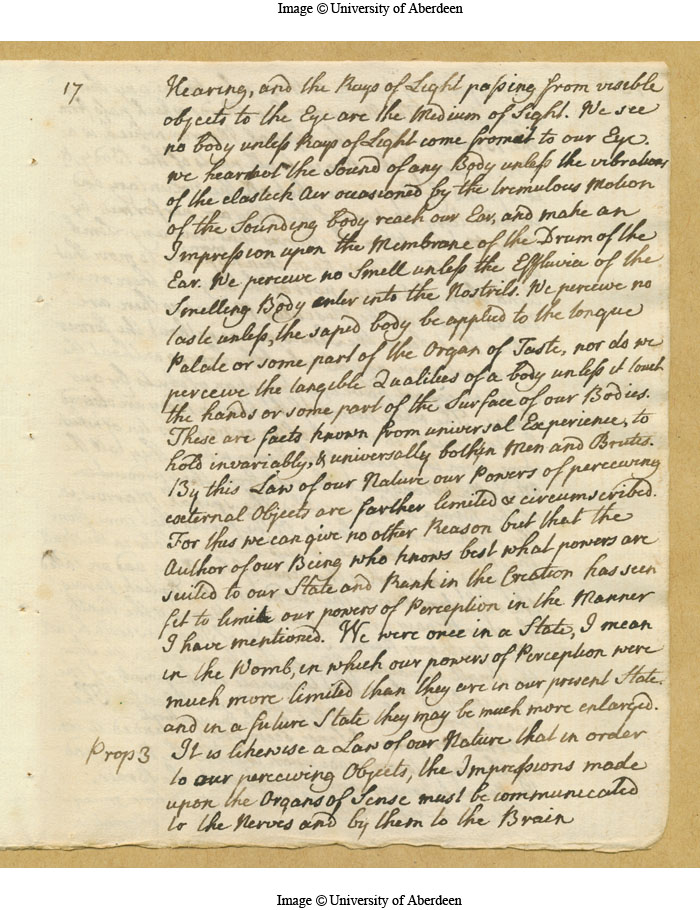 Image © University of Aberdeen
17
Hearing, and the Rays of Light passing from visible
objects to the Eye are the Medium of Sight. We see
no body unless Rays of Light come from it to our Eye.
we hear not the Sound of any Body unless the vibrations
of the elastick Air occasioned by the tremulous Motion
of the Sounding body reach our Ear, and make an
Impression upon the Membrane of the Drum of the
Ear. We perceive no Smell unless the Effluvia of the
Smelling Body enter into the Nostrils. We perceive no
taste unless, the sapid body be applied to the tongue
Palate or some part of the Organ of Taste, nor do we
perceive the tangible Qualities of a body unless it touch
the hands or some part of the Surface of our Bodies.
These are facts known from universal Experience, to
hold invariably, & universally both in Men and Brutes.
By this Law of our Nature our Powers of perceiving
external Objects are farther limited & circumscribed.
For this we can give no other Reason but that the
Author of our Being who knows best what powers are
suited to our State and Rank in the Creation has seen
fit to limit our powers of Perception in the Manner
I have mentioned. We were once in a State, I mean
in the Womb, in which our powers of Perception were
much more limited than they are in our present State.
and in a future State they may be much more enlarged.
Prop 3 It is likewise a Law of our Nature that in order
to our perceiving Objects, the Impressions made
upon the Organs of Sense must be communicated
to the Nerves and by them to the Brain
Image © University of Aberdeen